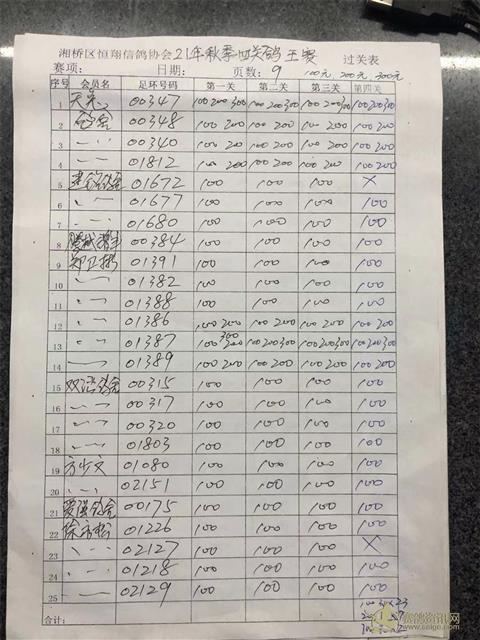 湘桥区恒翔信鸽协会21年秋季四关鸽王赛 过关表
赛项： 日期： 页数：9 100元，200元，300元
序号 会员名 足环号码 第一关 第二关 第三关 第四关
1 00347 100 200 300 100 200 300 100 200 300 100 200 300
2 00348 100 200 100 200 100 200 100 200
3 〃 00340 100 200 100 200 100 200 100 200
4 〃 01812 100 200 100 200 100 200 100 200
5 01672 100 100 100 X
6 〃 01677 100 100 100 100
7 〃 01680 100 100 100 100
8 00384 100 100 100 100
9 郑卫彬 01391 100 100 100 100
10 〃 01382 100 100 100 100
11 〃 01388 100 100 100 100
12 〃 01386 100 200 100 200 100 200 100 200
13 〃 01387 100 200 300 100 200 300 100 200 300 100 200 300
14 〃 01389 100 200 100 200 100 200 100 200
15 00315 100 100 100 100
16 〃 00317 100 100 100 100
17 〃 00320 100 100 100 100
18 〃 01803 100 100 100 100
19 方少文 01080 100 100 100 100
20 〃 02151 100 100 100 100
21 爱强鸽舍 00175 100 100 100 100
22 01226 100 100 100 100
23 〃 02127 100 100 100 X
24 〃 01218 100 100 100 100
25 〃 02129 100 100 100 100
合计：
赛鸽资讯网
www.saige.com